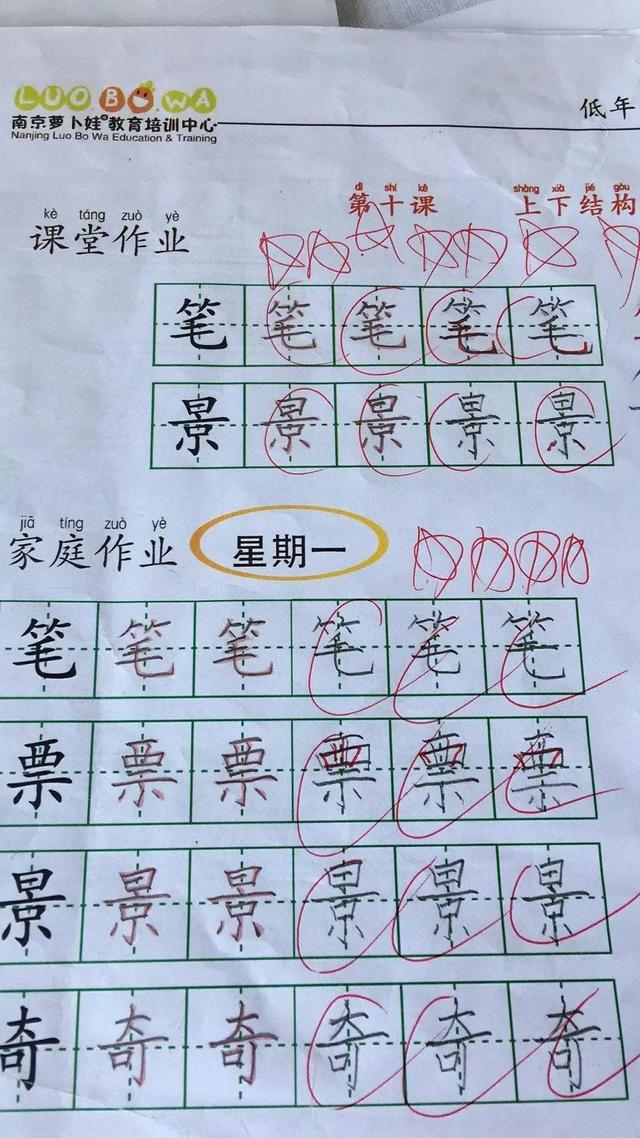 LUO.BO.WA
南京萝卜娃®教育培训中心
Nanjing Luo Bo Wa Education & Training
低年
dì shí kè shàng xià jié gòu
第十课 上下结构
kè táng zuò yè
课堂作业
笔笔笔笔笔
景景景景景
jiā tíng zuò yè
家庭作业 星期一
笔笔笔笔笔笔
票票票票票票
景景景景景景
奇奇奇奇奇奇